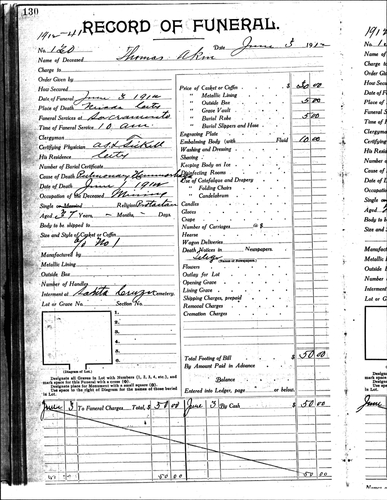 130
RECORD OF FUNERAL.
1912-41
No. 130
Date June 3 1912
Name of Deceased Thomas Akin
Charge to
Order Given by
How Secured
Date of Funeral June 3 1912
Place of Death Nevada City
Funeral Services at Sacramento
Time of Funeral Services 10 a.m.
Clergyman
Certifying Physician
His Residence City
Number of Burial Certificate
Cause of Death Pulmonary Hemorrhage
Date of Death June 1912
Occupation of the Deceased Mining
Single or Married Religion Protestant
Aged 37 Years - Months - Days.
Body to be shipped to
Size and Style of Casket or Coffin
No 1
Manufactured by
Metallic Lining
Outside Box
Number of Handles
Interment at Santa Cruz Cemetery.
Lot or Grave No. Section No.
1
2
3
4
5
6
(Diagram of Lot.)
Designate all Graves in Lot with Numbers (1, 2, 3, 4, etc.), and
mark space for this Funeral with a cross
Designate place for Monument with a small square
Use space to the right of Diagram for the names of those buried
in Lot.
Price of Casket or Coffin $30.00
" Metallic Lining
" Outside Box 5.00
" Grave Vault
" Burial Robe 5.00
" Burial Slippers and Hose
Engraving Plate
Embalming Body (with Fluid 10.00
Washing and Dressing
Shaving
Keeping Body on Ice
Disinfecting Rooms
Use of Catafalque and Drapery
" Folding Chairs
" Candelabrum
Candles
Gloves
Crape
Number of Carriages @ $
Hearse
Wagon Deliveries
Death Notices in Newspapers.
(Names of Newspapers.)
Flowers
Outlay for Lot
Opening Grave
Lining Grave
Shipping Charges, prepaid
Removal Charges
Cremation Charges
Total Footing of Bill $50.00
By Amount Paid in Advance
Balance
Entered into Ledger, page or below.
June 3 To Funeral Charges $50 00 June 3 By Cash $50 00
50 00 50 00